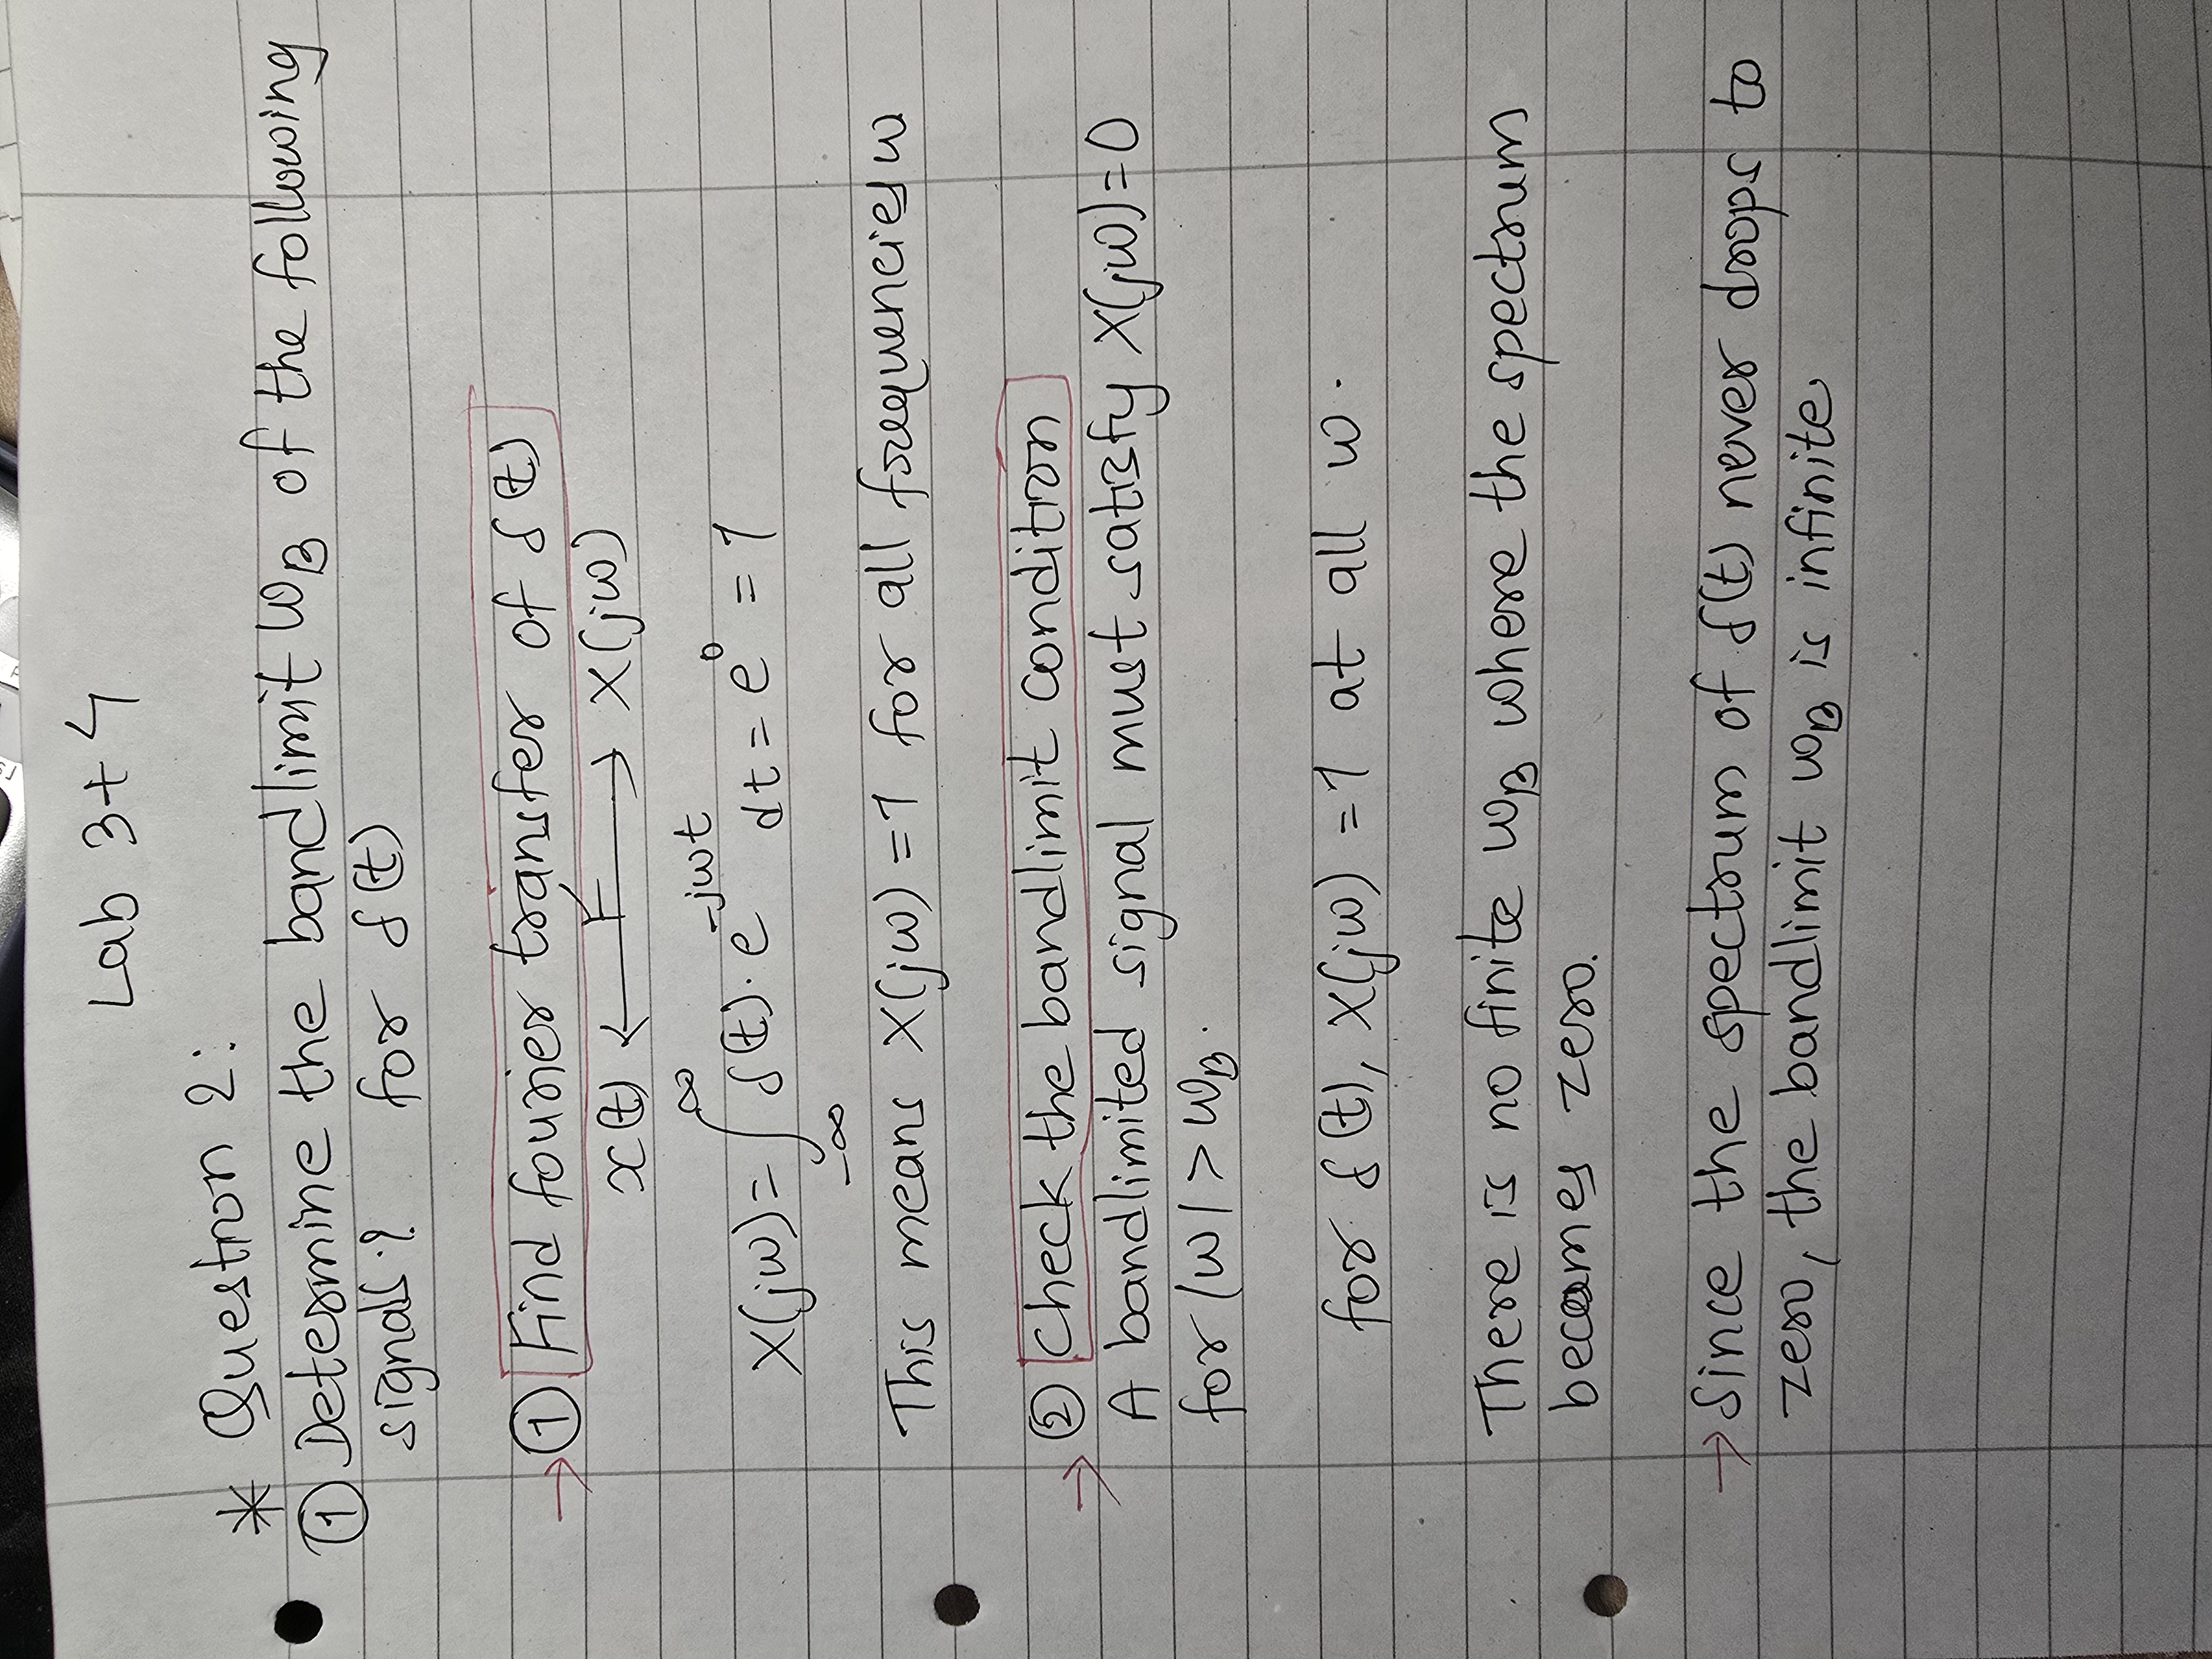 Lab 3+4
* Question 2:
① Determine the bandlimit ω_B of the following
signals? for δ(t)
→ ① Find fourier transfer of δ(t)
x(t) ←F→ X(jω)
X(jω) = ∫_{-∞}^{∞} δ(t) · e^{-jωt} dt = e^0 = 1
This means X(jω) = 1 for all frequencies ω
→ ② Check the bandlimit condition
A bandlimited signal must satisfy X(jω) = 0
for |ω| > ω_B.
for δ(t), X(jω) = 1 at all ω.
There is no finite ω_B where the spectrum
becomes zero.
→ Since the spectrum of δ(t) never drops to
zero, the bandlimit ω_B is infinite